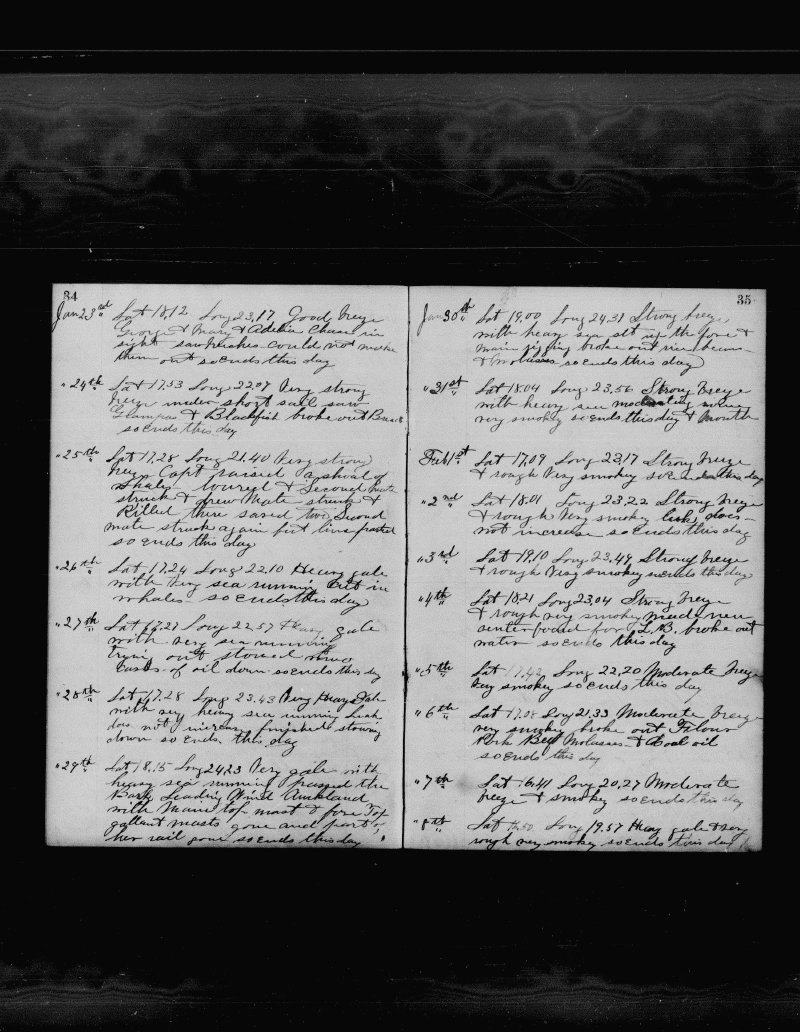 34
Jan 23rd Lat 18,12 Long 23,17 Good breze
George & Mary & Adelia Chase in
sight saw could not make
them out so ends this day
" 24th Lat 17,53 Long 22,07 Very strong
breze under short sail saw
Grampas & Blackfish broke out
so ends this day
" 25th Lat 17,28 Long 21,40 Very strong
breze Capt raised a shoal of
whales lowered & Second Mate
struck & drew Mate struck &
Killed three saved two Second
mate struck again but line parted
so ends this day
" 26th Lat 17,24 Long 22,10 Heavy gale
with very sea running Cut in
whales so ends this day
" 27th Lat 17,27 Long 22,57 Heavy gale
with very sea running
trying out stowed
casks of oil down so ends this day
" 28th Lat 17,28 Long 23,43 Very Heavy Gale
with very heavy sea running Leak
does not increase finished stowing
down so ends this day
" 29th Lat 18,15 Long 24,23 Very gale with
heavy sea running passed the
Bark Leading Wind Auckland
with Main top mast & fore Top
gallant masts gone and part of
her rail gone so ends this day
35
Jan 30th Lat 19,00 Long 24,31 Strong breze
with heavy sea set up the fore &
main rigging broke out rice beans
& Molasses so ends this day
" 31st Lat 18,04 Long 23,56 Strong Breze
with heavy sea moderating
very smokey so ends this day & Month
Feb 1st Lat 17,09 Long 23,17 Strong breze
& rough Very smokey so ends this day
" 2nd Lat 18,01 Long 23,22 Strong breze
& rough Very smokey leak does
not increase so ends this day
" 3rd Lat 19,10 Long 23,49 Strong breze
& rough Very smokey so ends this day
" 4th Lat 18,21 Long 23,04 Strong breze
& rough very smokey made new
centerboard for L,B, broke out
water so ends this day
" 5th Lat 17,42 Long 22,20 Moderate breze
Very smokey so ends this day
" 6th Lat 17,05 Long 21,33 Moderate breze
very smokey broke out Flour
Pork Beef Molasses & Coal oil
so ends this day
" 7th Lat 16,41 Long 20,27 Moderate
breze & smokey so ends this day
" 8th Lat Long 19,57 Heavy gale & very
rough very smokey so ends this day